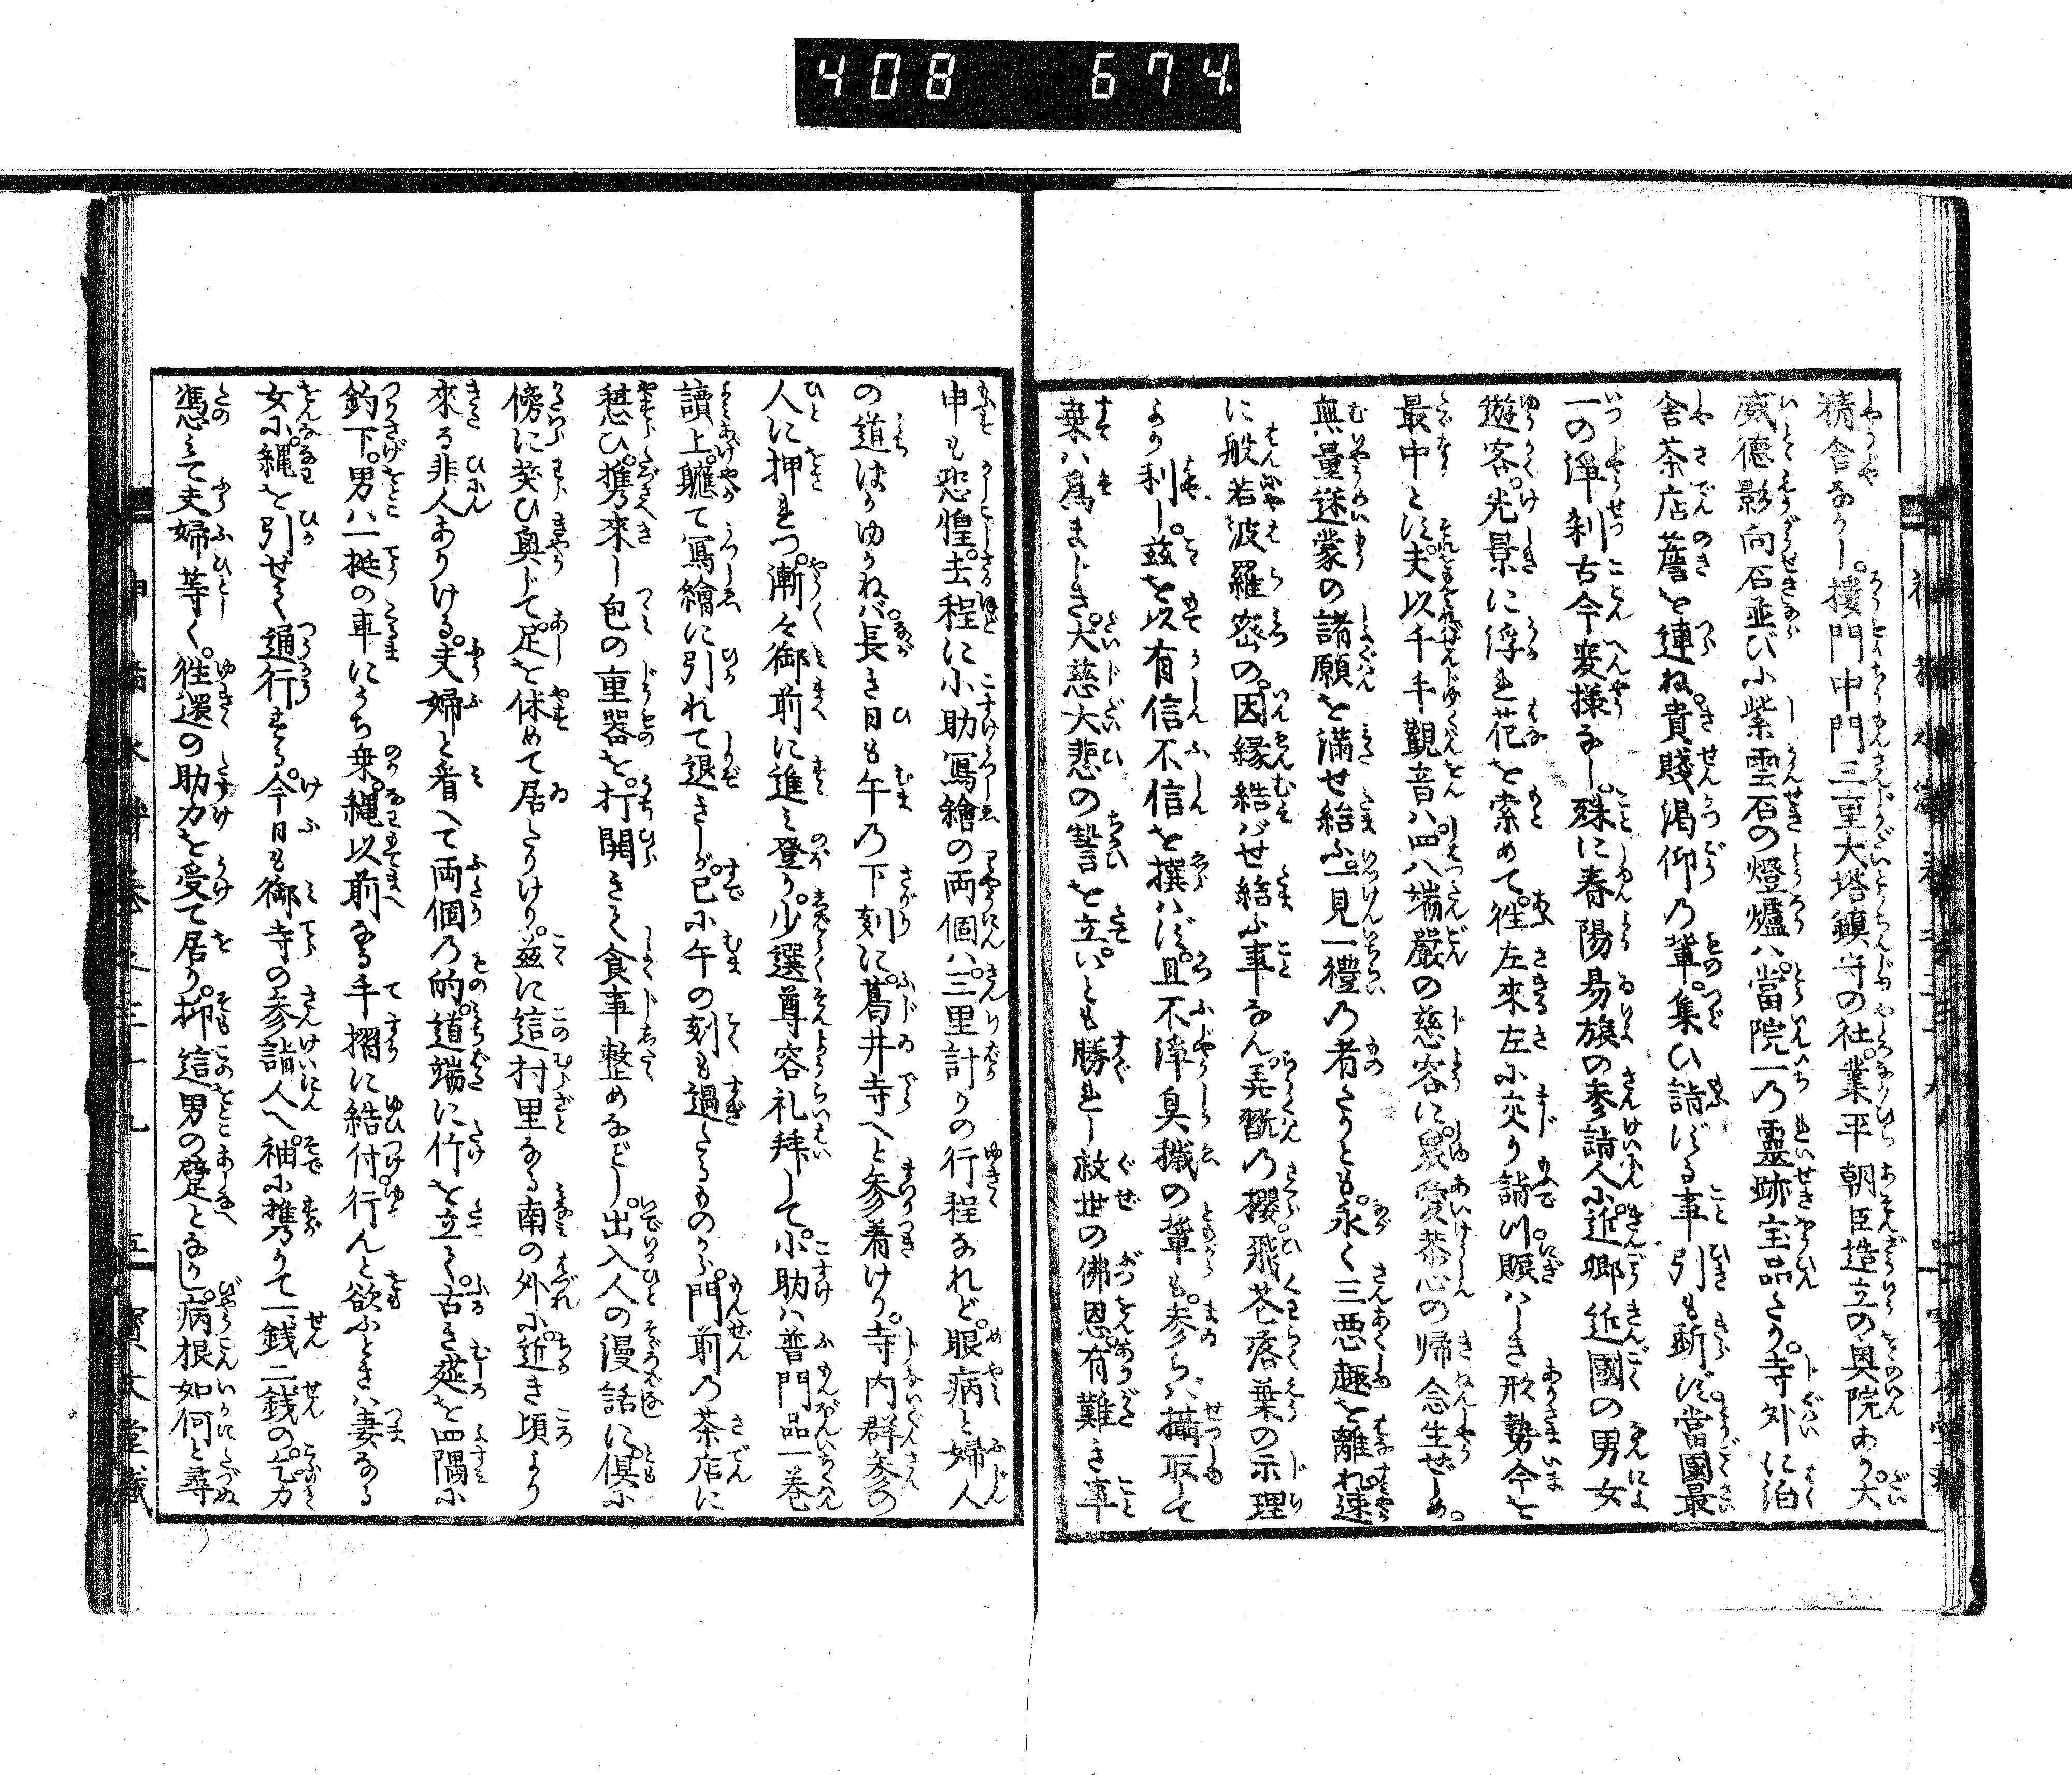 408 674.
精舎なり。樓門中門三重大塔鎮守の社。業平朝臣造立の奥院あり。大
威徳影向石並びに紫雲石の燈爐ハ。當院一の靈跡宝品たり。寺外に泊
舎茶店簷を連ね。貴賤渇仰の輩。集ひ詣ずる事引も断ず。當國最
一の浄刹古今変様なし。殊に春陽易旅の参詣人に。近郷近國の男女
遊客。光景に浮れ花を索めて。徃左來左に交り詣 賑ハしき形勢今を
最中とす。夫以千手觀音ハ四八端嚴の慈容に。衆愛恭心の帰念生ぜしめ。
無量迷蒙の諸願を満せ給ふ。一見一禮の者たりとも。永く三悪趣を離れ。速
に般若波羅密の。因縁結バせ給ふ事なん。弄翫の櫻飛花落葉の示理
より利し。茲を以有信不信を撰ハず。且不浄臭穢の輩も。参らバ攝取して
棄ハ為まじき。大慈大悲の誓を立。いとも勝れし救世の佛恩。有難き事
申も恐惶。去程に小助冩繪の両個ハ。三里計りの行程なれど。眼病と婦人
の道はかゆかねバ。長き日も午の下刻に。葛井寺へと参着けり。寺内群参の
人に押れつ。漸々御前に進ミ登り。少選尊容礼拜して。小助ハ普門品一巻
讀上。軈て冩繪に引れて退きしが。已に午の刻も過たるものから。門前の茶店に
憩ひ。携來し包の重器を。打開きて食事整めなどし。出入人の漫話に。倶に
傍に笑ひ興じて。足を休めて居たりけり。茲に這村里なる南の外に。近き頃より
來る非人ありける。夫婦と看へて両個の的。道端に竹を立て。古き莚を四隅に
釣下。男ハ一挺の車にうち乗。縄以前なる手摺に結付。行んと欲ふときハ妻なる
女に。縄を引せて通行する。今日も御寺の参詣人へ。袖に携りて一銭二銭の。乞力
憑ミて夫婦等く。徃還の助力を受て居り。抑這男の躄となりし。病根如何と尋